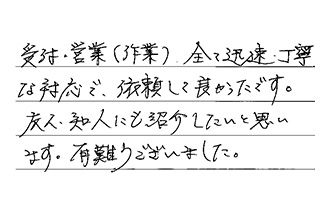 受付・営業(作業)全て迅速・丁寧
な対応で、依頼して良かったです。
友人・知人にも紹介したいと思い
ます。有難うございました。